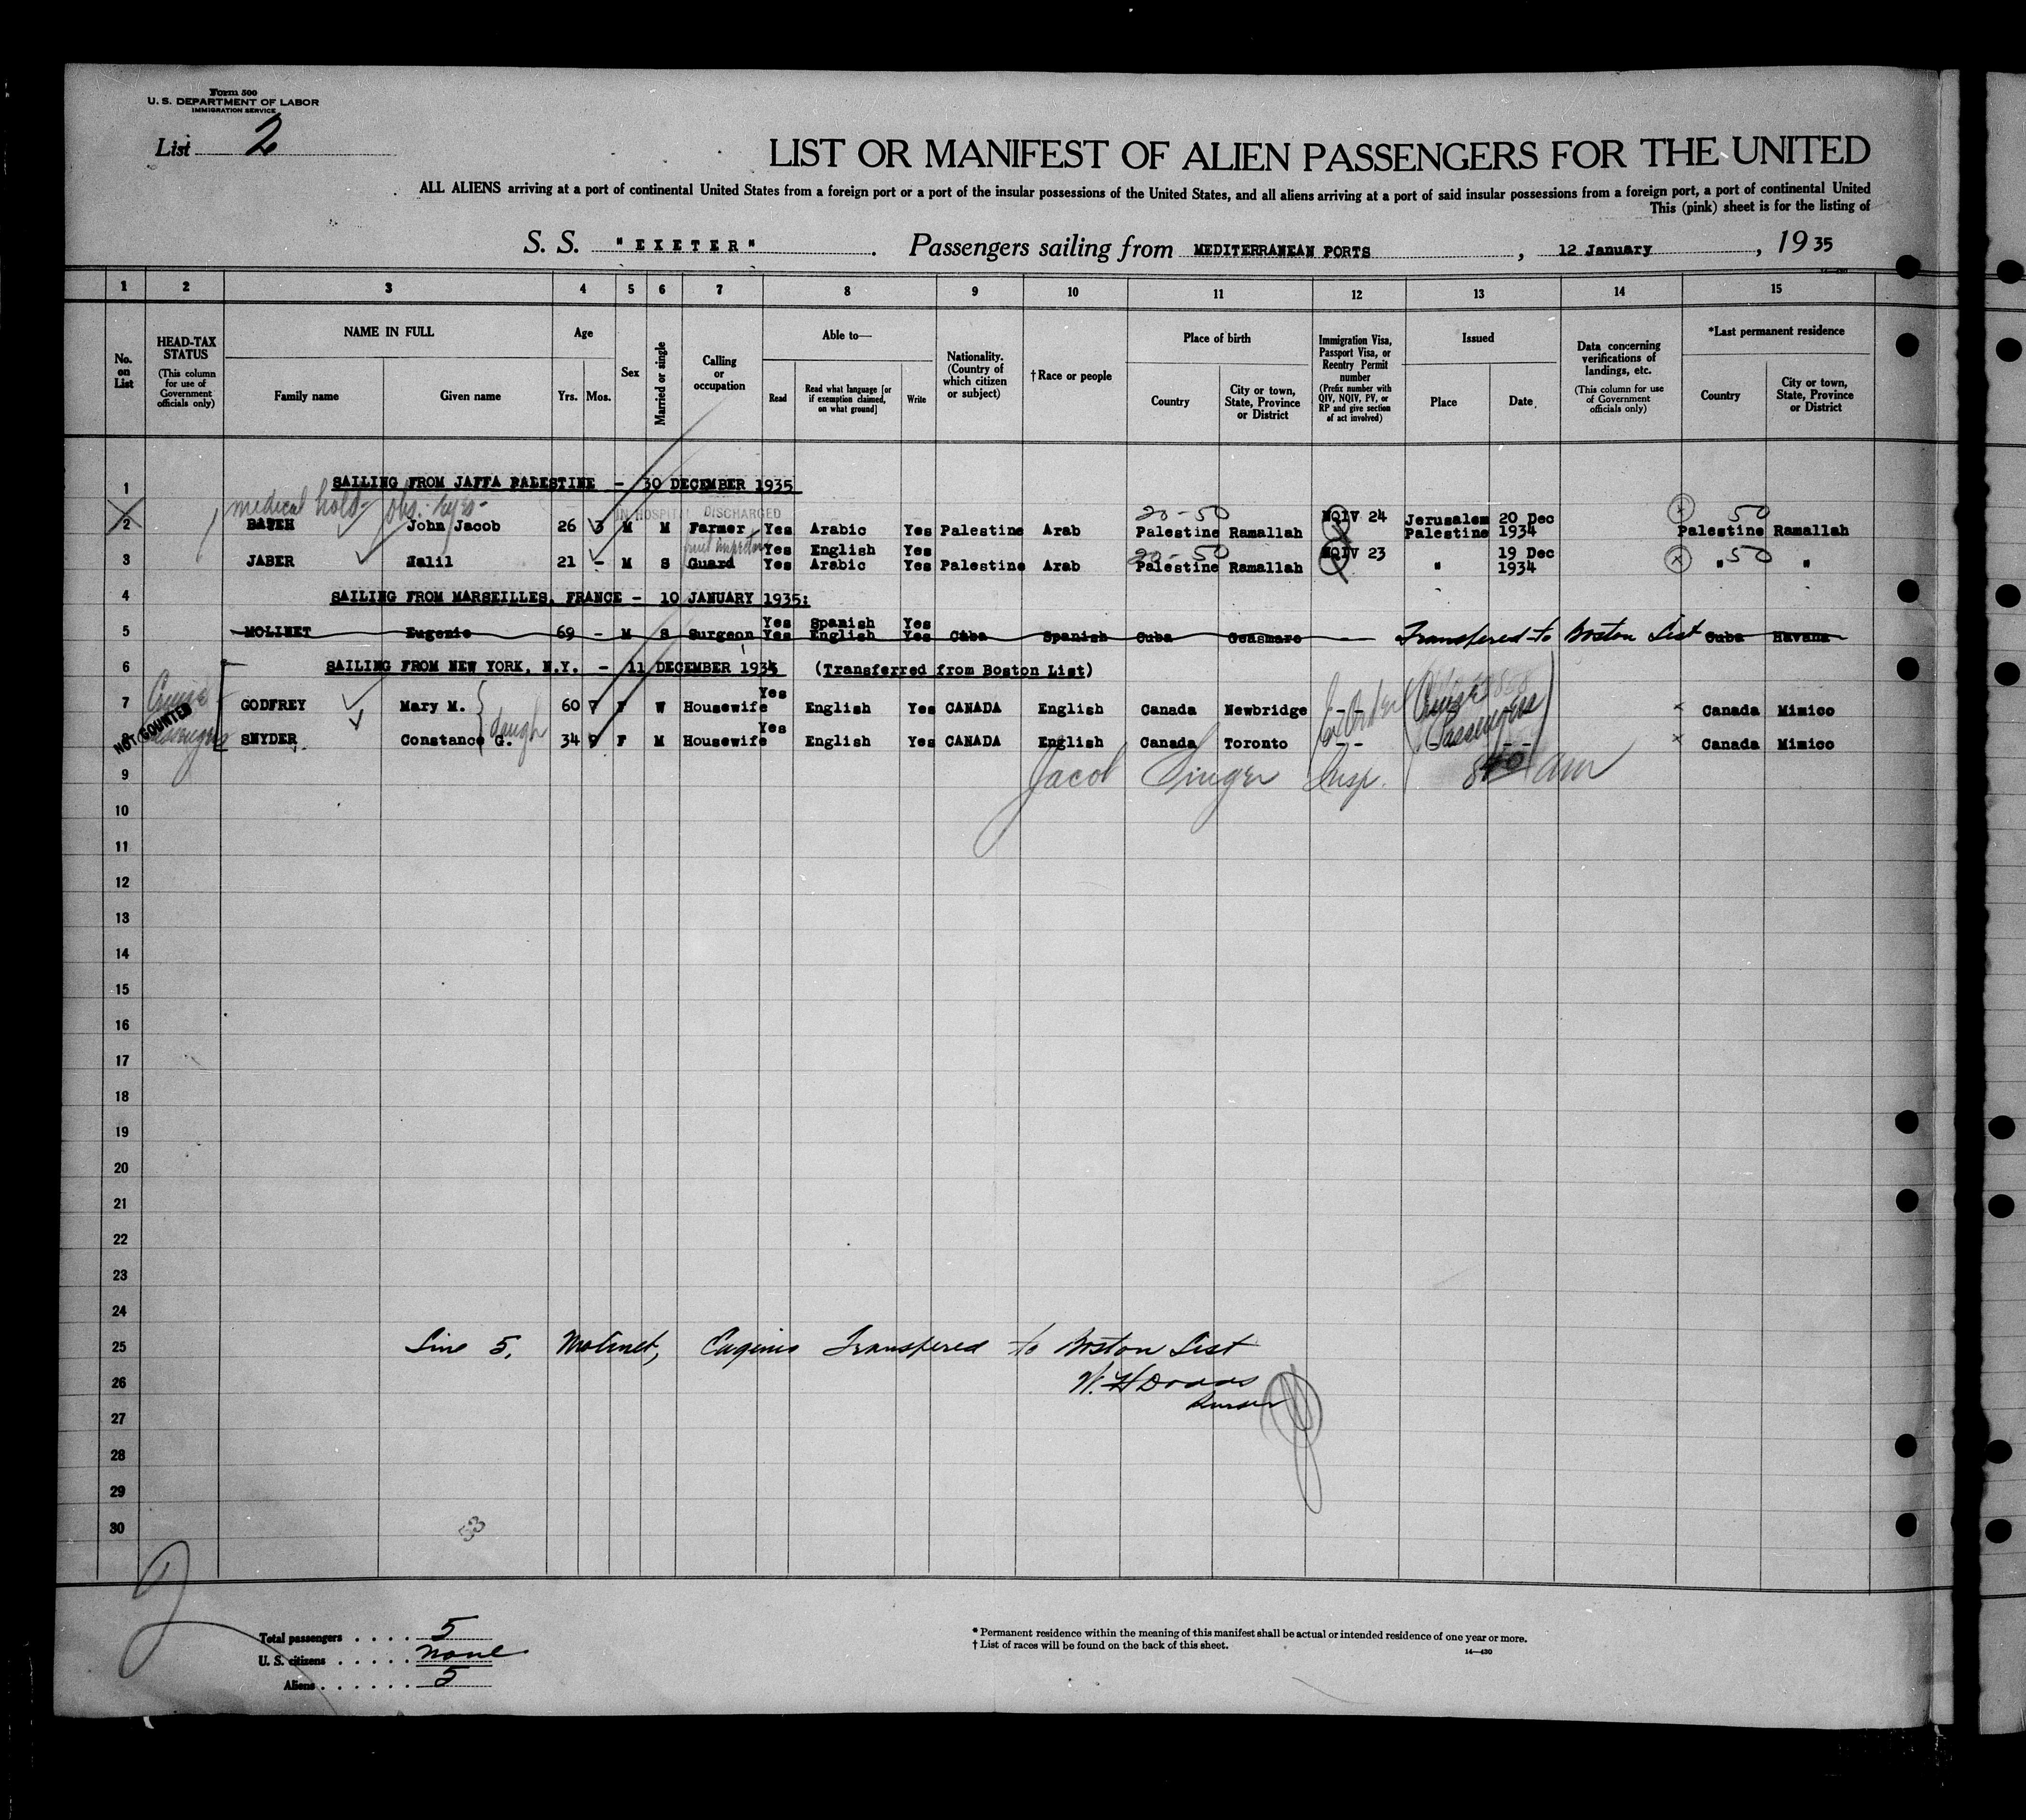 Form 500
U. S. DEPARTMENT OF LABOR
IMMIGRATION SERVICE
List 2
LIST OR MANIFEST OF ALIEN PASSENGERS FOR THE UNITED
ALL ALIENS arriving at a port of continental United States from a foreign port or a port of the insular possessions of the United States, and all aliens arriving at a port of said insular possessions from a foreign port, a port of continental United
This (pink) sheet is for the listing of
S. S. "EXETER". Passengers sailing from MEDITERRANEAN PORTS, 12 January, 1935
1 2 3 4 5 6 7 8 9 10 11 12 13 14 15
No. on List
HEAD-TAX STATUS (This column for use of Government officials only)
NAME IN FULL
Family name Given name
Age
Yrs. Mos.
Sex
Married or single
Calling or occupation
Able to—
Read
Read what language [or if exemption claimed, on what ground]
Write
Nationality. (Country of which citizen or subject)
† Race or people
Place of birth
Country
City or town, State, Province or District
Immigration Visa, Passport Visa, or Reentry Permit number (Prefix number with QIV, NQIV, PV, or RP and give section of act involved)
Issued
Place Date
Data concerning verifications of landings, etc. (This column for use of Government officials only)
*Last permanent residence
Country
City or town, State, Province or District
1 SAILING FROM JAFFA PALESTINE - 30 DECEMBER 1935
medical hold - obs. eyes -
IN HOSPITAL DISCHARGED
20-50 50
2 BATEH John Jacob 26 3 M M Farmer Yes Arabic Yes Palestine Arab Palestine Ramallah NQIV 24 Jerusalem Palestine 20 Dec 1934 Palestine Ramallah
Yes English Yes
20-50 50
3 JABER Halil 21 - M S Guard Yes Arabic Yes Palestine Arab Palestine Ramallah NQIV 23 " 19 Dec 1934 " "
4 SAILING FROM MARSEILLES, FRANCE - 10 JANUARY 1935:
Yes Spanish Yes
5 MOLINET Eugenio 69 - M S Surgeon Yes English Yes Cuba Spanish Cuba Guasmaro Transfered to Boston List Cuba Havana
6 SAILING FROM NEW YORK, N.Y. - 11 DECEMBER 1934 (Transferred from Boston List)
Cruise Passengers
NOT COUNTED
7 GODFREY Mary M. 60 F W Housewife Yes English Yes CANADA English Canada Newbridge - - Cruise Passengers Canada Mimico
8 SNYDER Constance G. daugh 34 F M Housewife Yes English Yes CANADA English Canada Toronto - - - - Canada Mimico
9 Jacob Singer Insp. 840 am
10
11
12
13
14
15
16
17
18
19
20
21
22
23
24
25 Line 5, Molinet, Eugenio Transfered to Boston List
26 W. H Dodds
27 Purser
28
29
30
Total passengers . . . . 5
U. S. citizens . . . . . none
Aliens . . . . . . 5
* Permanent residence within the meaning of this manifest shall be actual or intended residence of one year or more.
† List of races will be found on the back of this sheet.
14—430